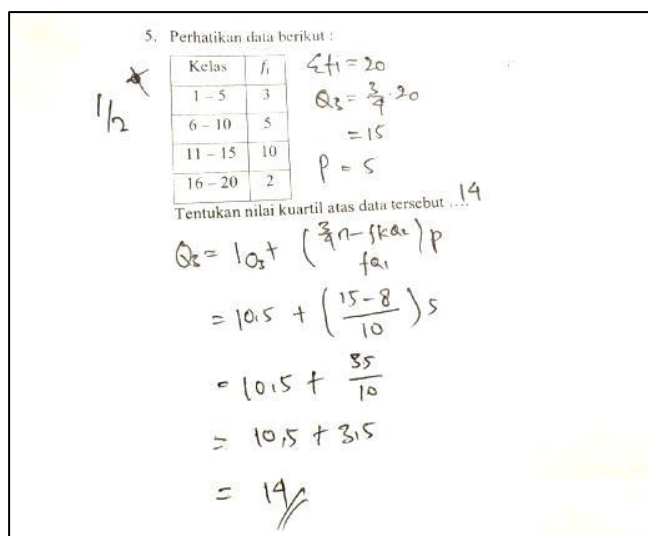 5. Perhatikan data berikut :
Kelas fi
1 – 5 3
6 – 10 5
11 – 15 10
16 – 20 2
1/2
Σf1 = 20
Q3 = 3/4 . 20
= 15
P = 5
Tentukan nilai kuartil atas data tersebut .... 14
Q3 = lQ3 + (3/4n – fkQ2 / fQ1) p
= 10.5 + (15 – 8 / 10) 5
= 10.5 + 35/10
= 10,5 + 3,5
= 14